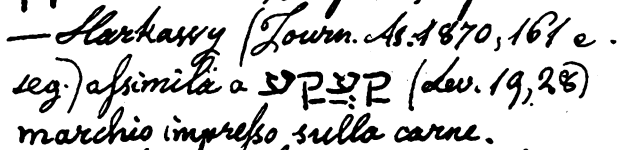 — Harkassy (Journ. As. 1870, 161 e.
seg.) aſsimila a קַעֲקַע (Lev. 19,28)
marchio impreſso sulla carne.